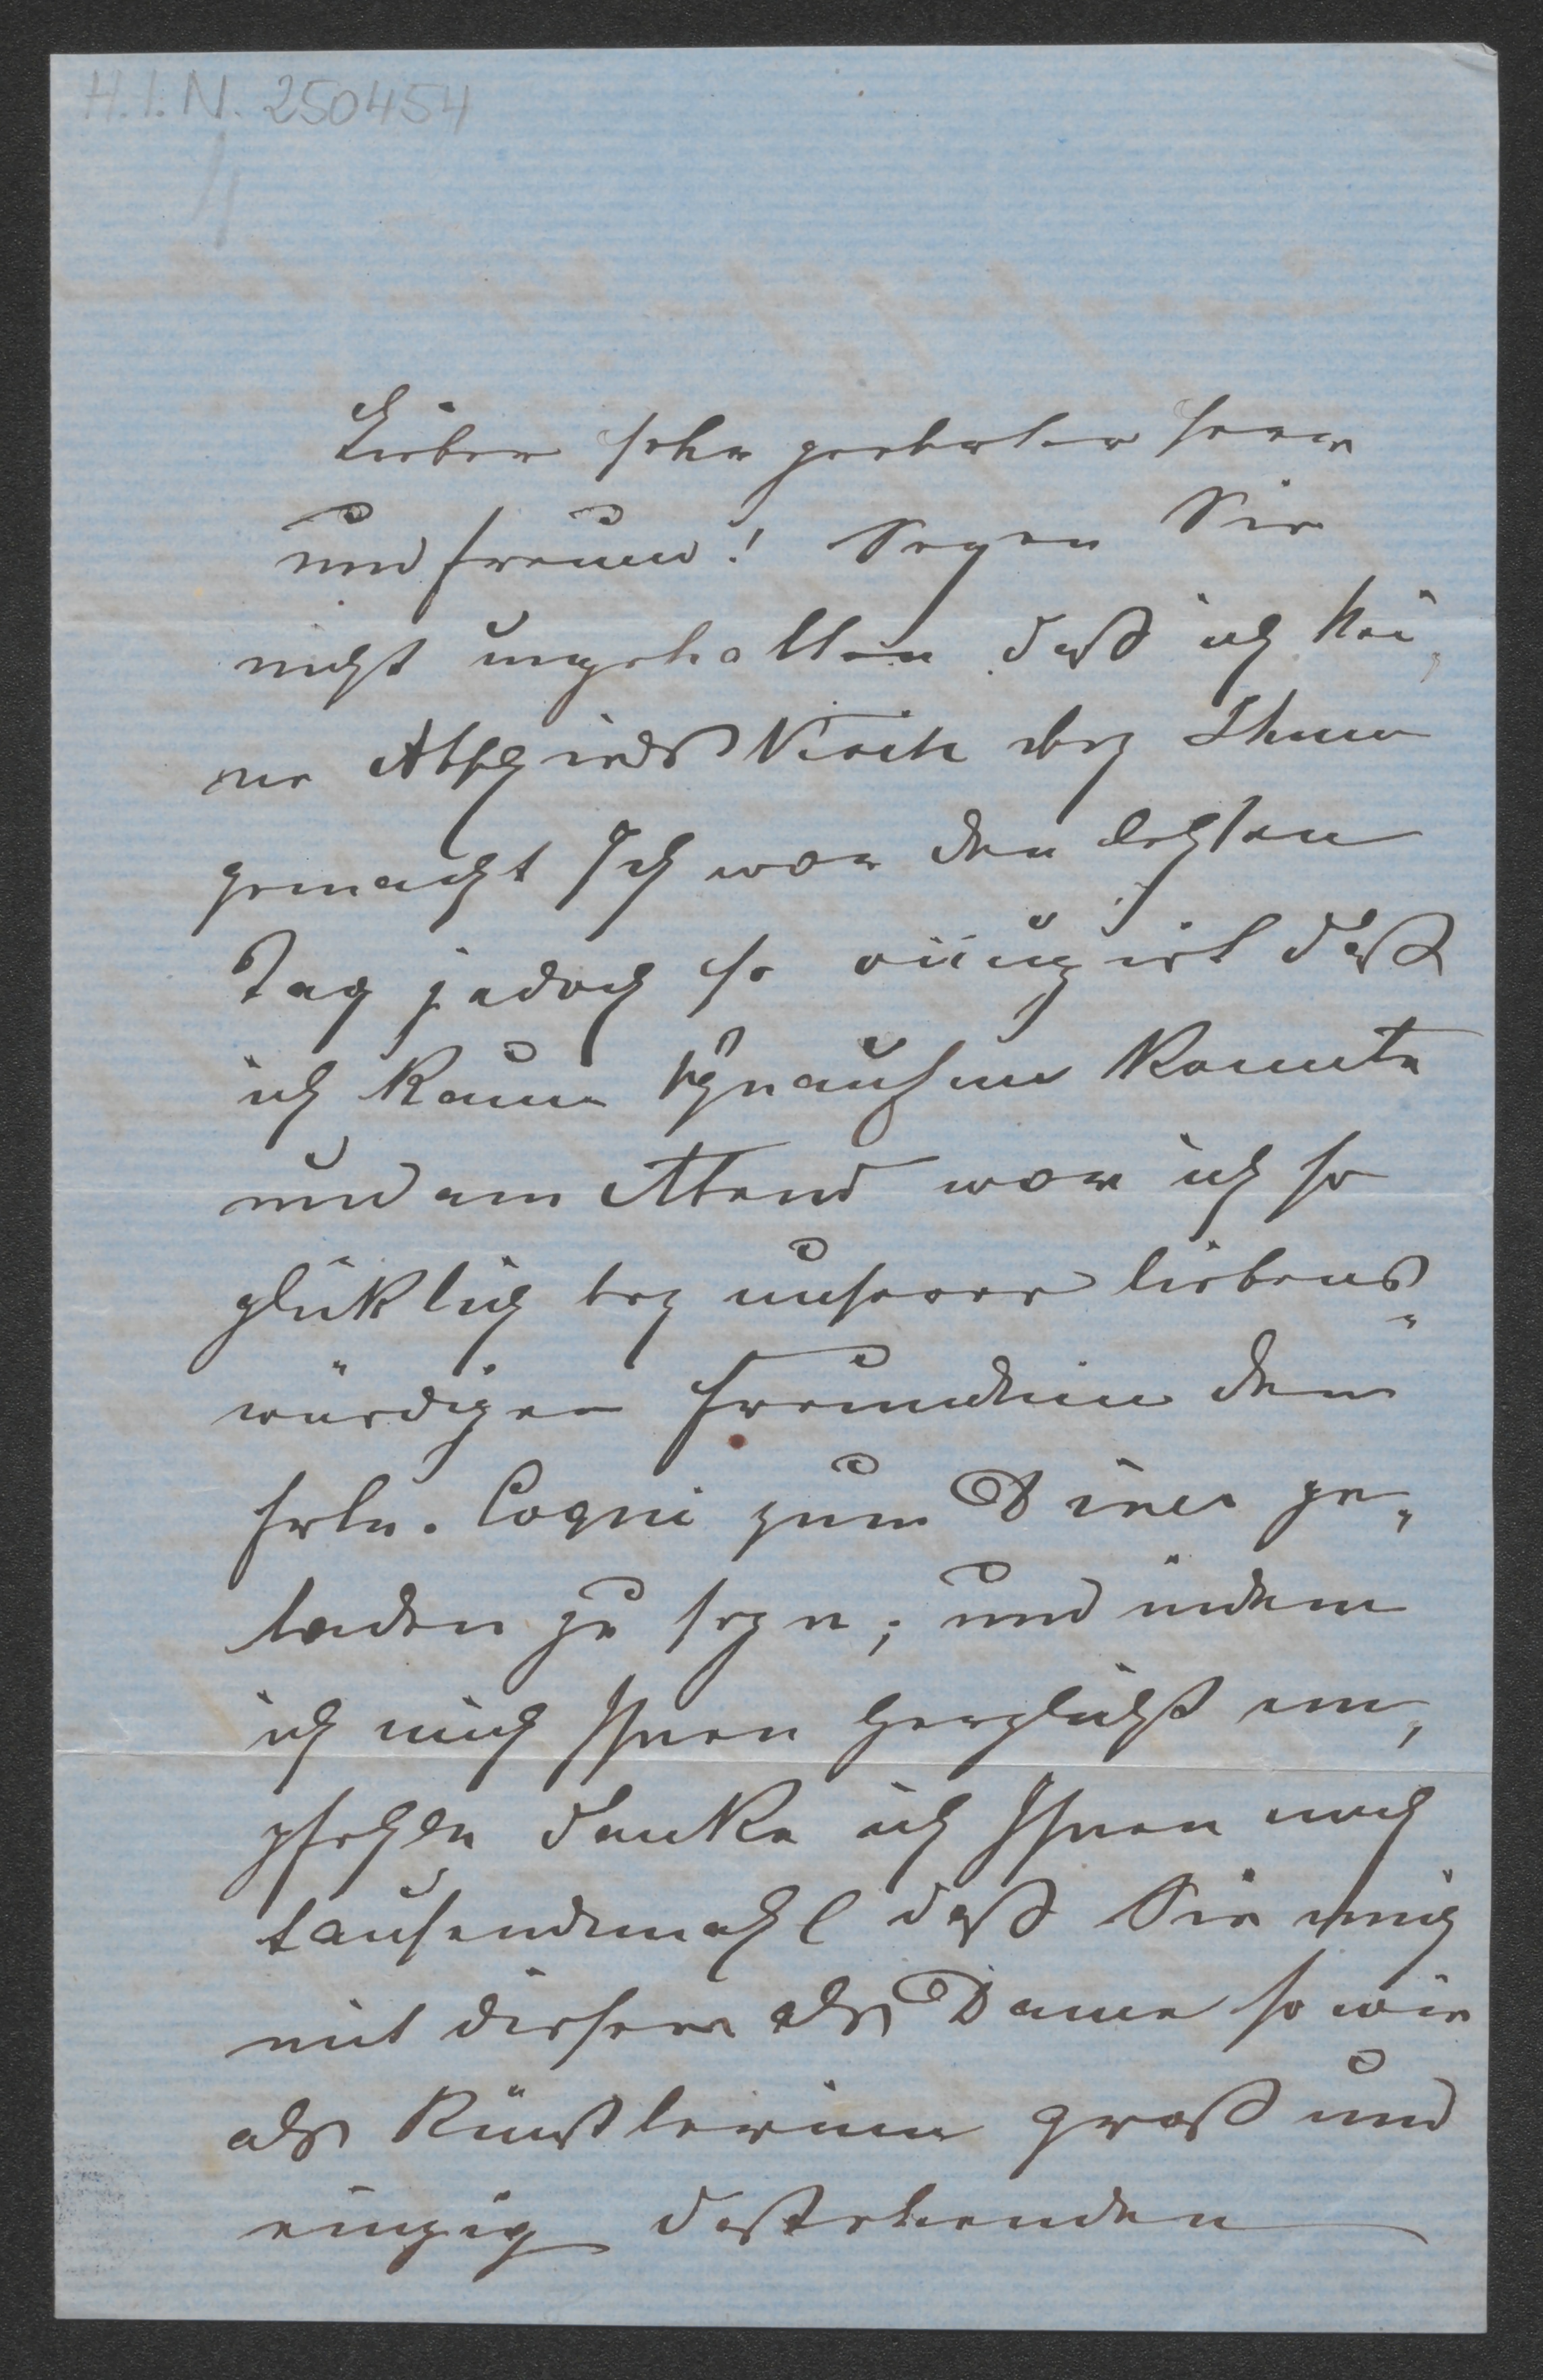 H.I.N. 250454
Lieber sehr geehrter Herr
und Freund! Seyen Sie
nicht ungehalten daß ich kei„
ne Abschieds Visite bey Ihnen
gemacht Ich war den letzten
Tag jedoch so daß
ich kaum schnaufen konnte
und am Abend war ich so
glüklich bey unserer liebens„
würdigen Freundinn dem
Frln. Cogni zum Diner ge„
laden zu seyn; und indem
ich mich Ihnen herzlichst em„
pfehle danke ich Ihnen noch
tausendmahl daß Sie mich
mit dieser als Dame so wie
als Künstlerinn groß und
einzig dastehenden